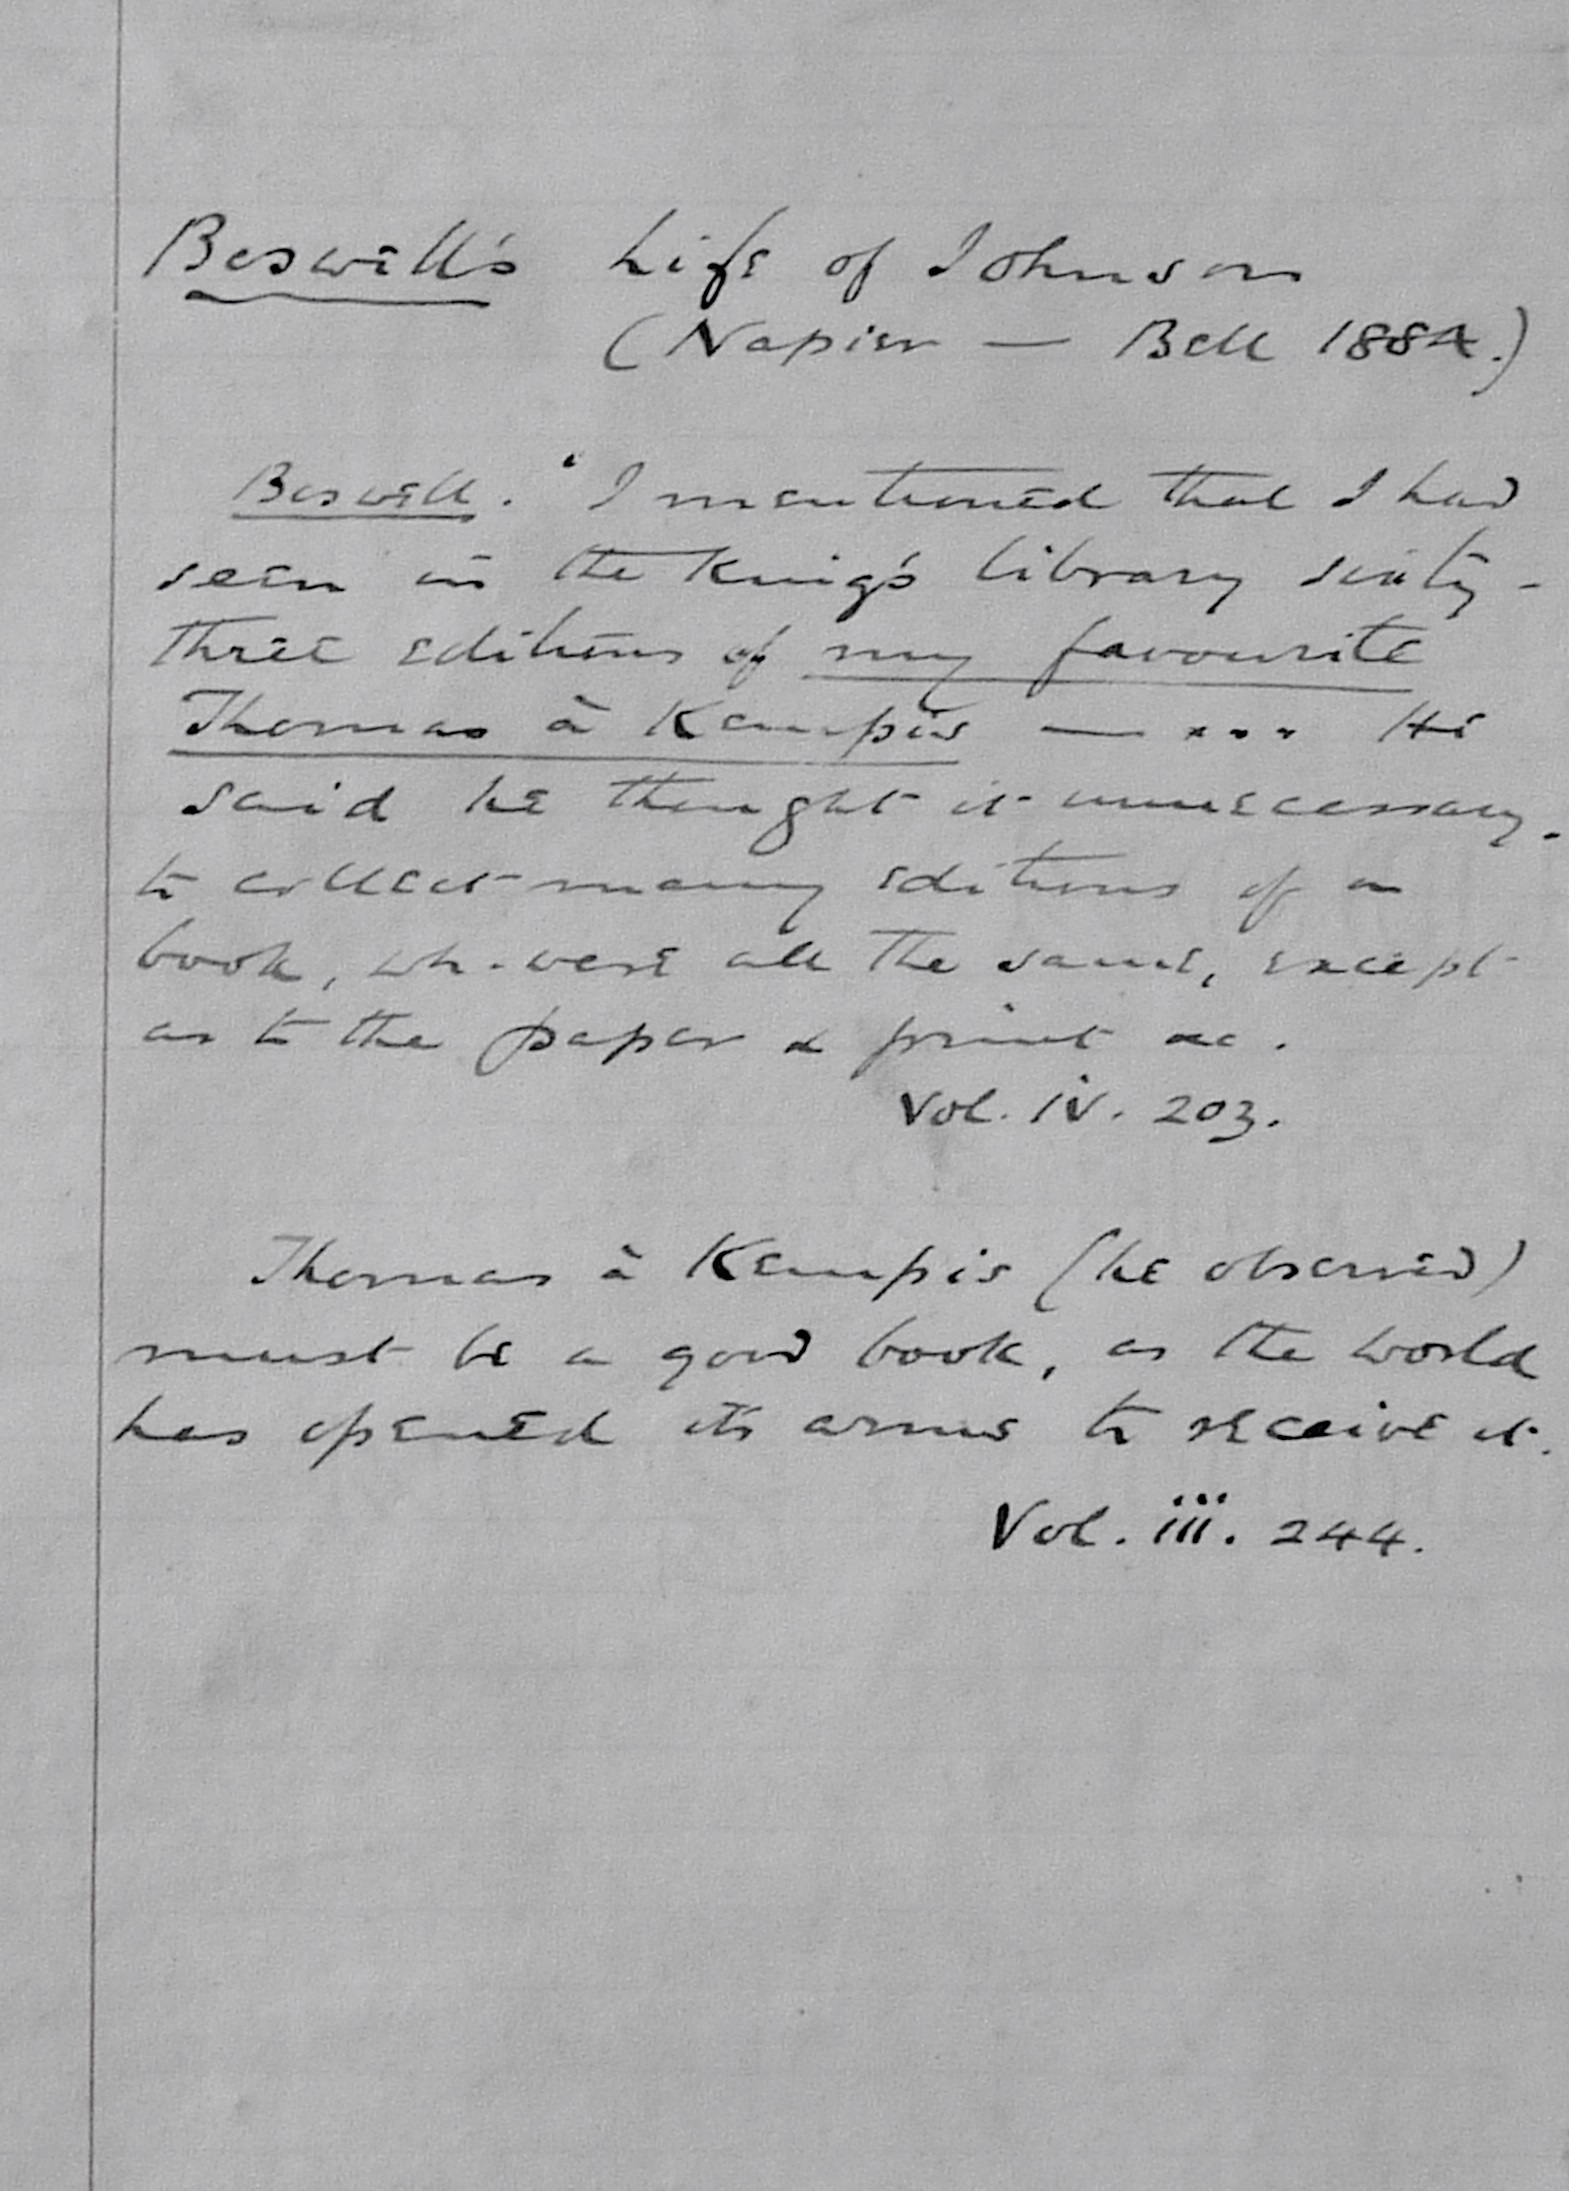 Boswell's Life of Johnson
(Napier — Bell 1884.)
Boswell. "I mentioned that I had
seen in the King's library sixty-
three editions of my favourite
Thomas à Kempis — .... He
said he thought it unnecessary.
to collect many editions of a
book, wh. were all the same, except
as to the paper & print &c.
Vol. iv. 203.
Thomas à Kempis (he observed)
must be a good book, as the world
has opened its arms to receive it.
Vol. iii. 244.